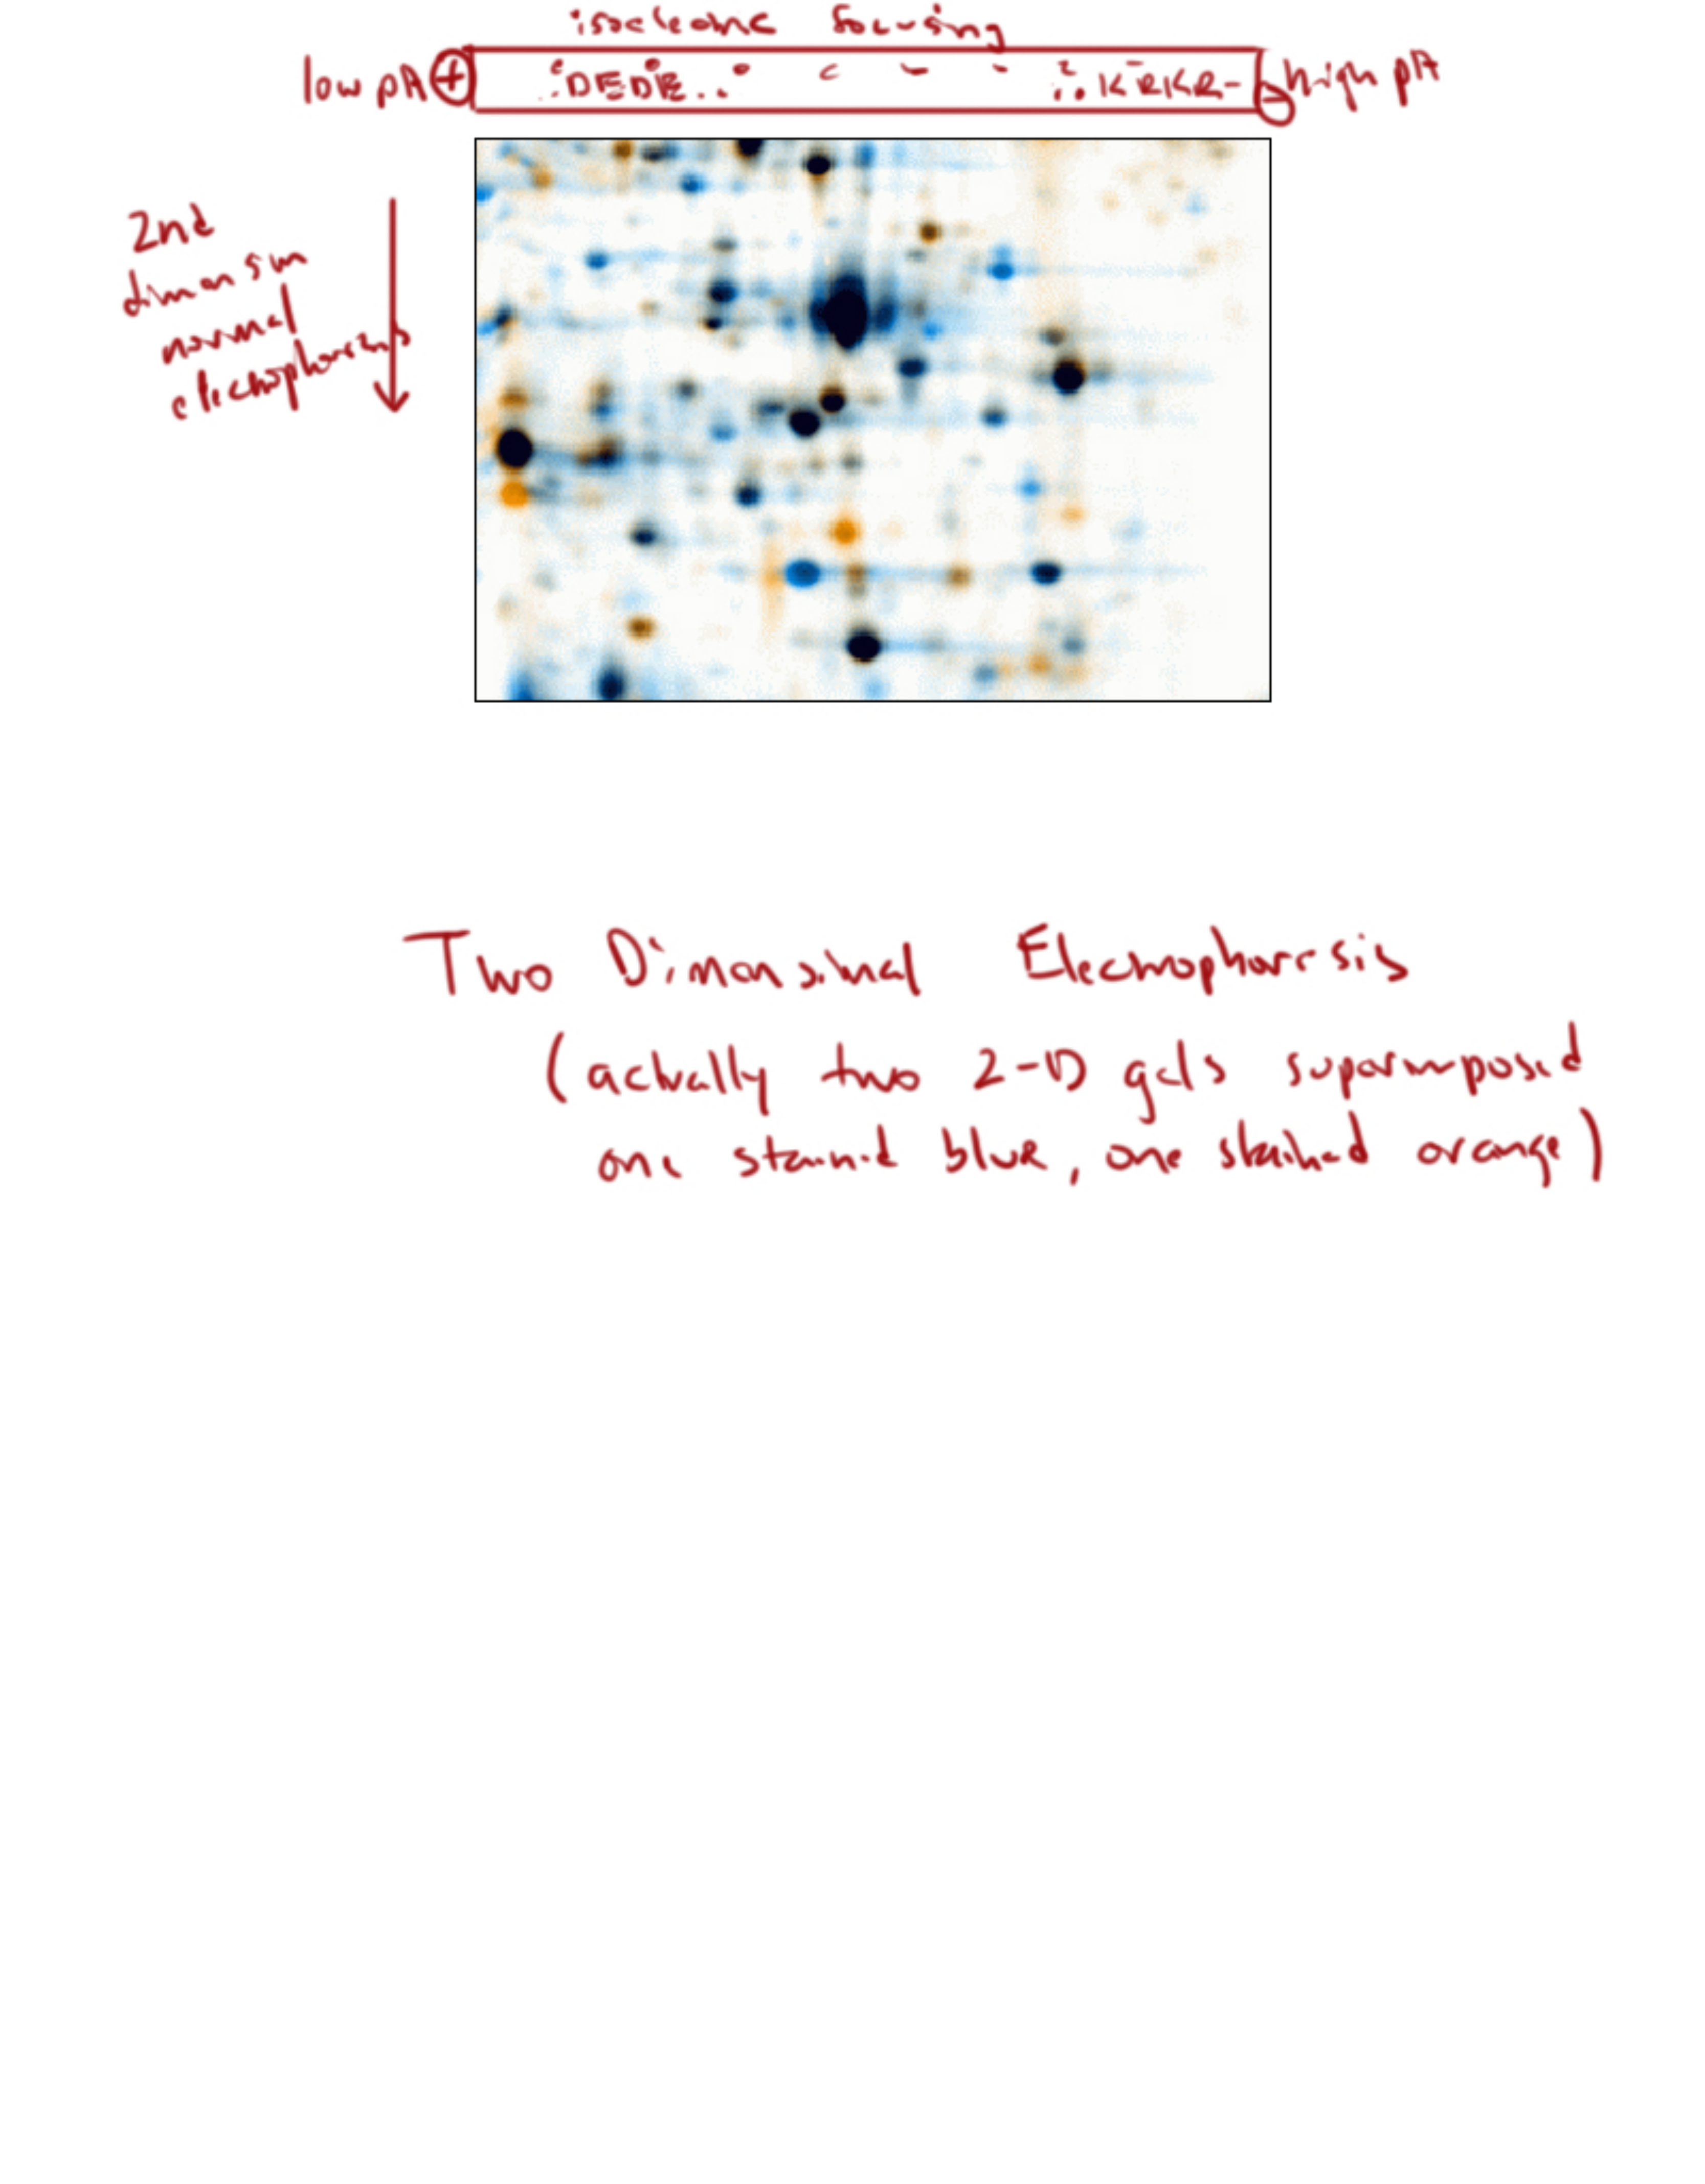 isoelectric focusing
low pH + DEDE KRKR - high pH
2nd
dimension
normal
electrophoresis
Two Dimensional Electrophoresis
(actually two 2-D gels superimposed
one stained blue, one stained orange)